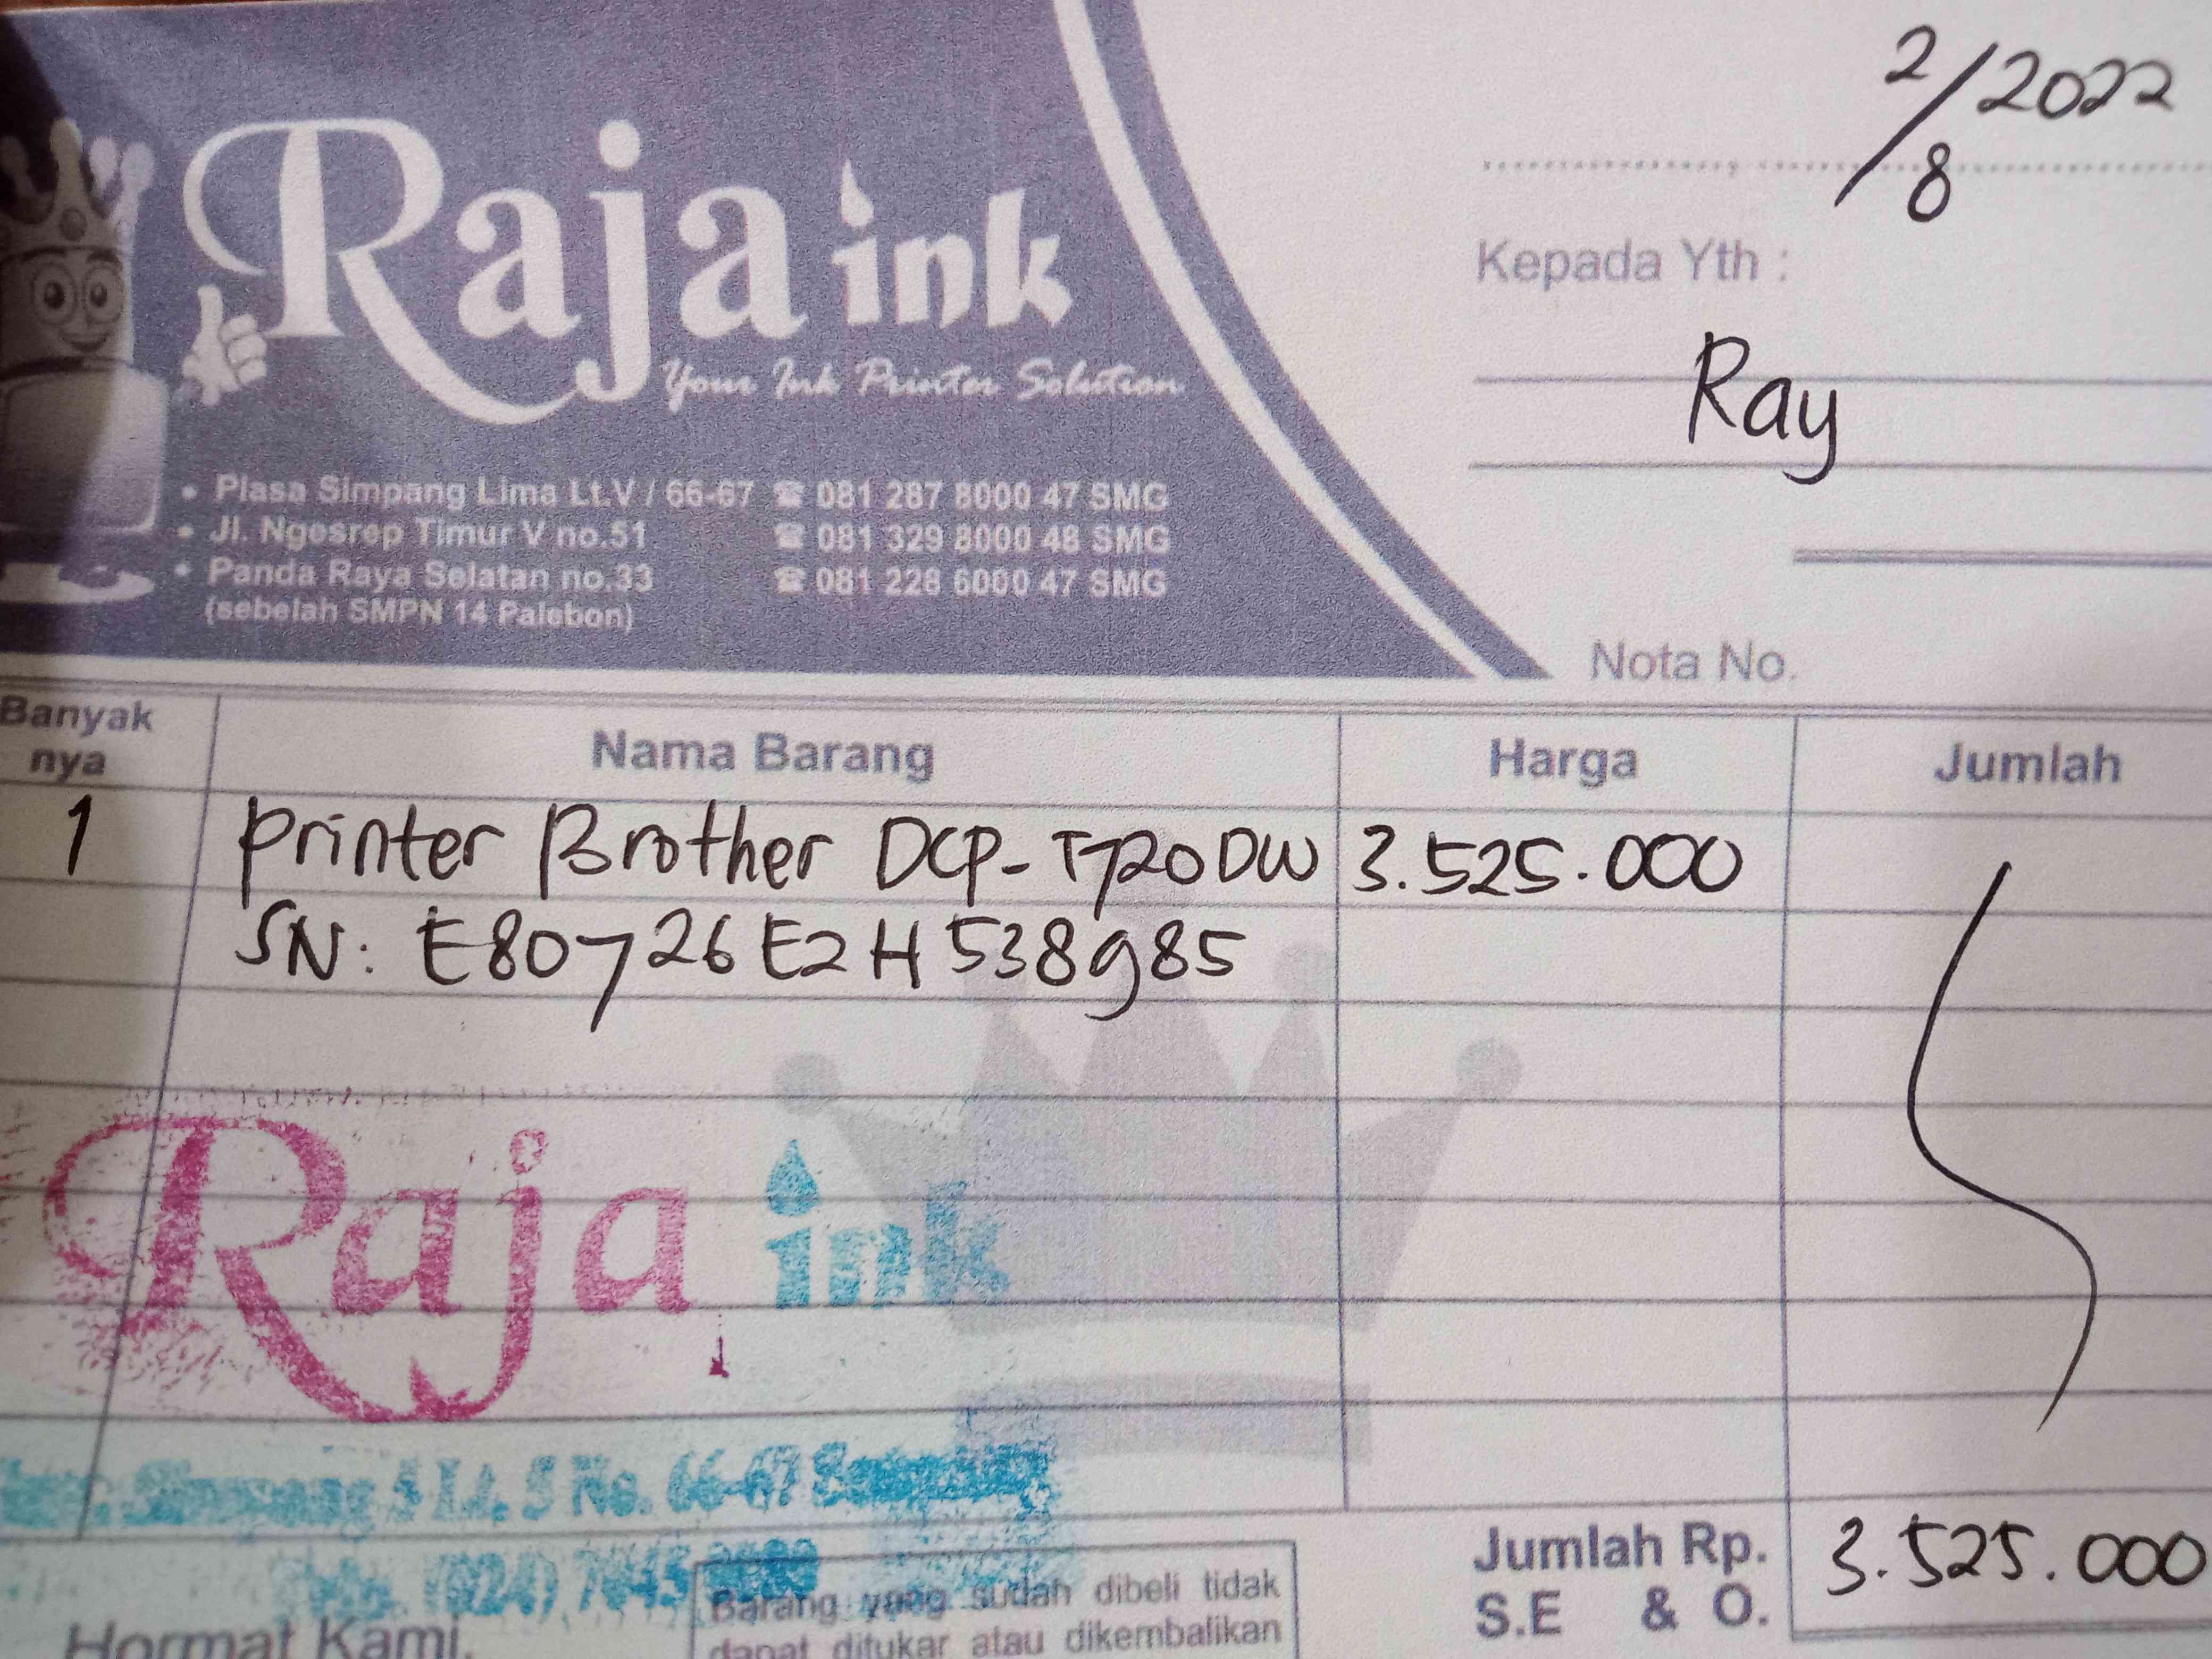 2/8 2022
Raja ink
Your Ink Printer Solution
Kepada Yth :
Ray
• Plasa Simpang Lima Lt.V / 66-67 ☎ 081 287 8000 47 SMG
• Jl. Ngesrep Timur V no.51 ☎ 081 329 8000 48 SMG
• Panda Raya Selatan no.33 ☎ 081 228 6000 47 SMG
(sebelah SMPN 14 Palebon)
Nota No.
Banyak nya Nama Barang Harga Jumlah
1 Printer Brother DCP-T720DW 3.525.000
SN: E80726E2H538985
Raja ink
Simpang 5 Lt. 5 No. 66-67
(024)
Jumlah Rp. 3.525.000
S.E & O.
Hormat Kami,
Barang yang sudah dibeli tidak
dapat ditukar atau dikembalikan